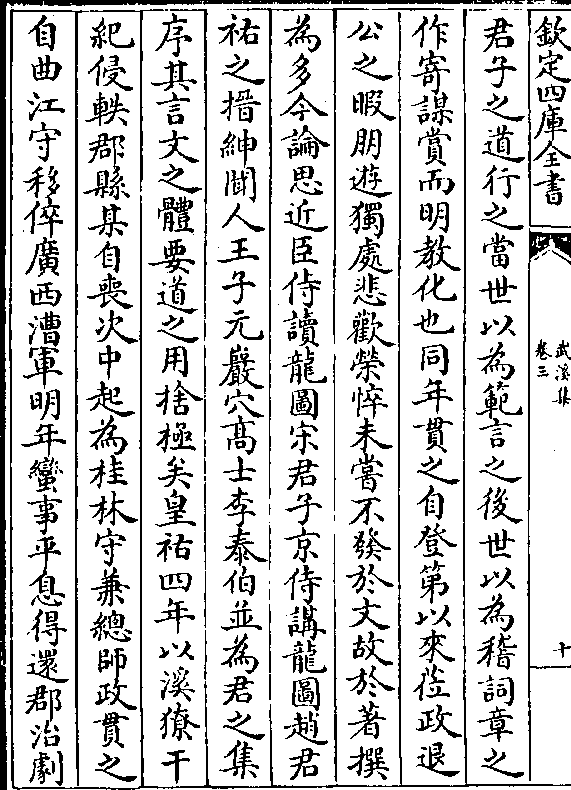 欽定四庫全書
武溪集
卷三
十
君子之道行之當世以為範言之後世以為稽詞章之
作寄謀賞而明教化也同年貫之自登第以來莅政退
公之暇朋遊獨處悲歡榮悴未嘗不發於文故於著撰
為多今論思近臣侍讀龍圖宋君子京侍講龍圖趙君
祐之搢紳聞人王子元巖穴髙士李泰伯並為君之集
序其言文之體要道之用捨極矣皇祐四年以溪獠干
紀侵軼郡縣某自喪次中起為桂林守兼總師政貫之
自曲江守移倅廣西漕軍明年蠻事平息得還郡治劇